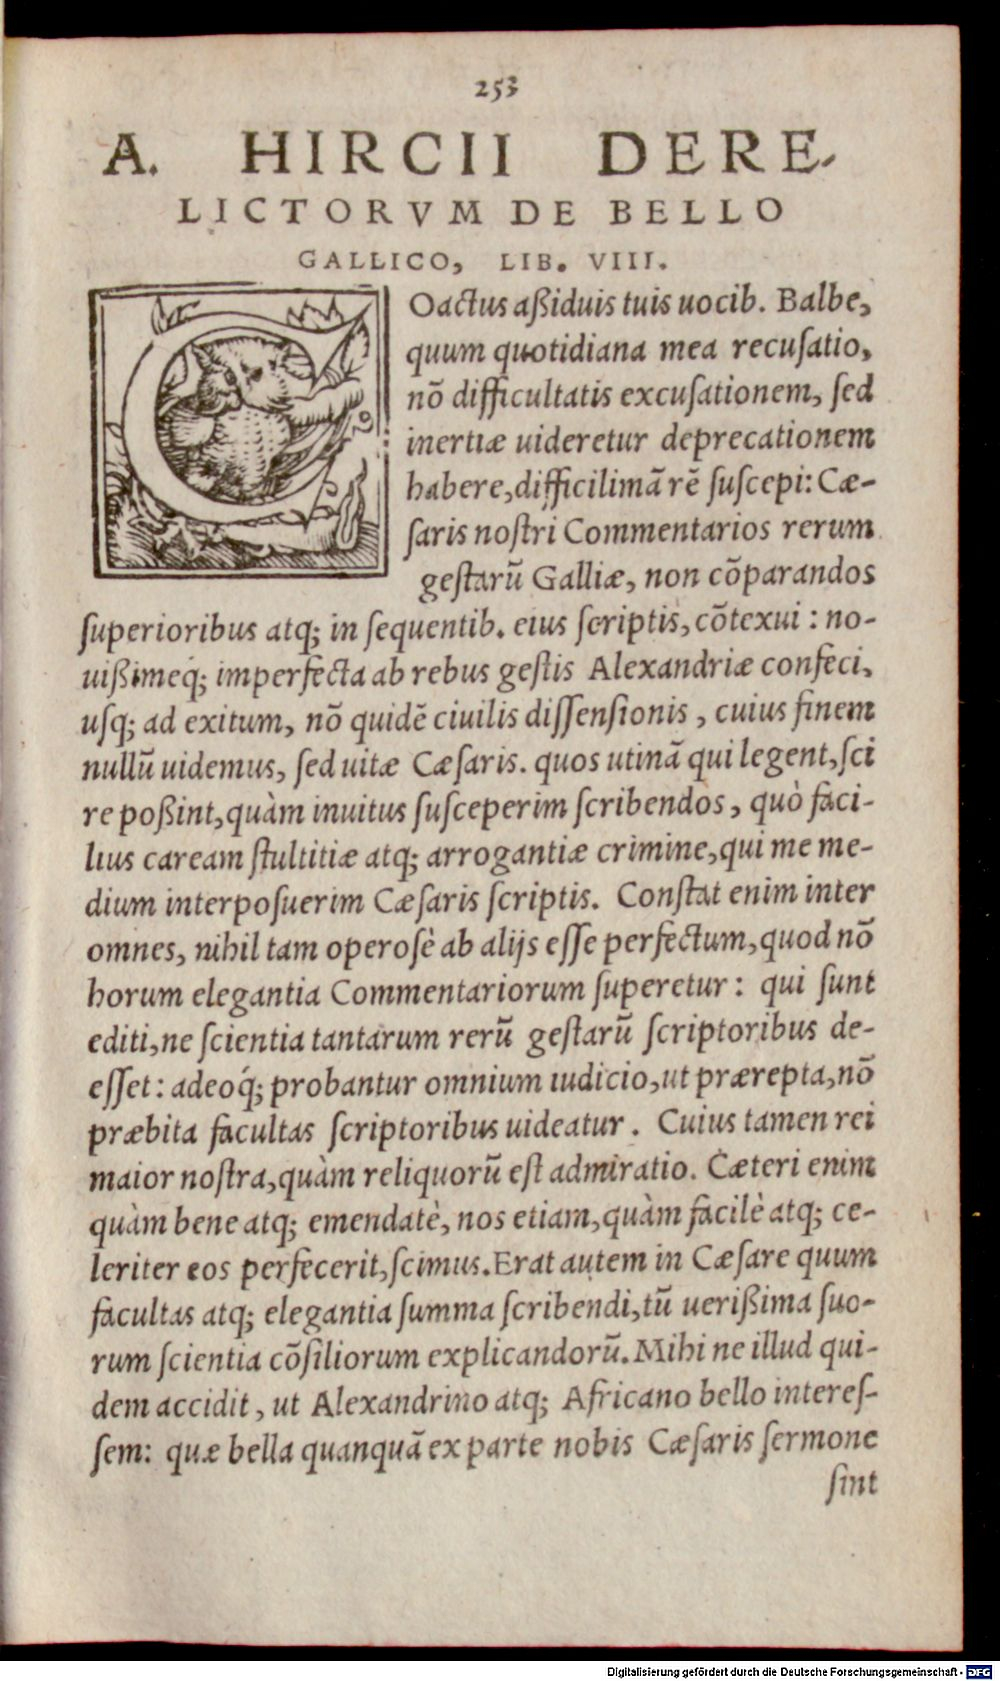 253
A. HIRCII DERE-
LICTORVM DE BELLO
GALLICO, LIB. VIII.
COactus aßiduis tuis uocib. Balbe,
quum quotidiana mea recuſatio,
nō difficultatis excuſationem, ſed
inertiæ uideretur deprecationem
habere,difficilimā rē ſuſcepi: Cæ-
ſaris noſtri Commentarios rerum
geſtarū Galliæ, non cōparandos
ſuperioribus atq; in ſequentib. eius ſcriptis, cōtexui : no-
uißimeq́; imperfecta ab rebus geſtis Alexandriæ confeci,
uſq; ad exitum, nō quidē ciuilis diſſenſionis , cuius finem
nullū uidemus, ſed uitæ Cæſaris. quos utinā qui legent,ſci
re poßint,quàm inuitus ſuſceperim ſcribendos , quò faci-
lius caream ſtultitiæ atq; arrogantiæ crimine,qui me me-
dium interpoſuerim Cæſaris ſcriptis. Conſtat enim inter
omnes, nihil tam operoſè ab alijs eſſe perfectum,quod nō
horum elegantia Commentariorum ſuperetur : qui ſunt
editi,ne ſcientia tantarum rerū geſtarū ſcriptoribus de-
eſſet: adeoq́; probantur omnium iudicio,ut prærepta,nō
præbita facultas ſcriptoribus uideatur . Cuius tamen rei
maior noſtra,quàm reliquorū eſt admiratio. Cæteri enim
quàm bene atq; emendatè, nos etiam,quàm facilè atq; ce-
leriter eos perfecerit,ſcimus.Erat autem in Cæſare quum
facultas atq; elegantia ſumma ſcribendi,tū uerißima ſuo-
rum ſcientia cōſiliorum explicandorū. Mihi ne illud qui-
dem accidit , ut Alexandrino atq; Africano bello intereſ-
ſem: quæ bella quanquā ex parte nobis Cæſaris ſermone
ſint
Digitalisierung gefördert durch die Deutsche Forschungsgemeinschaft - DFG